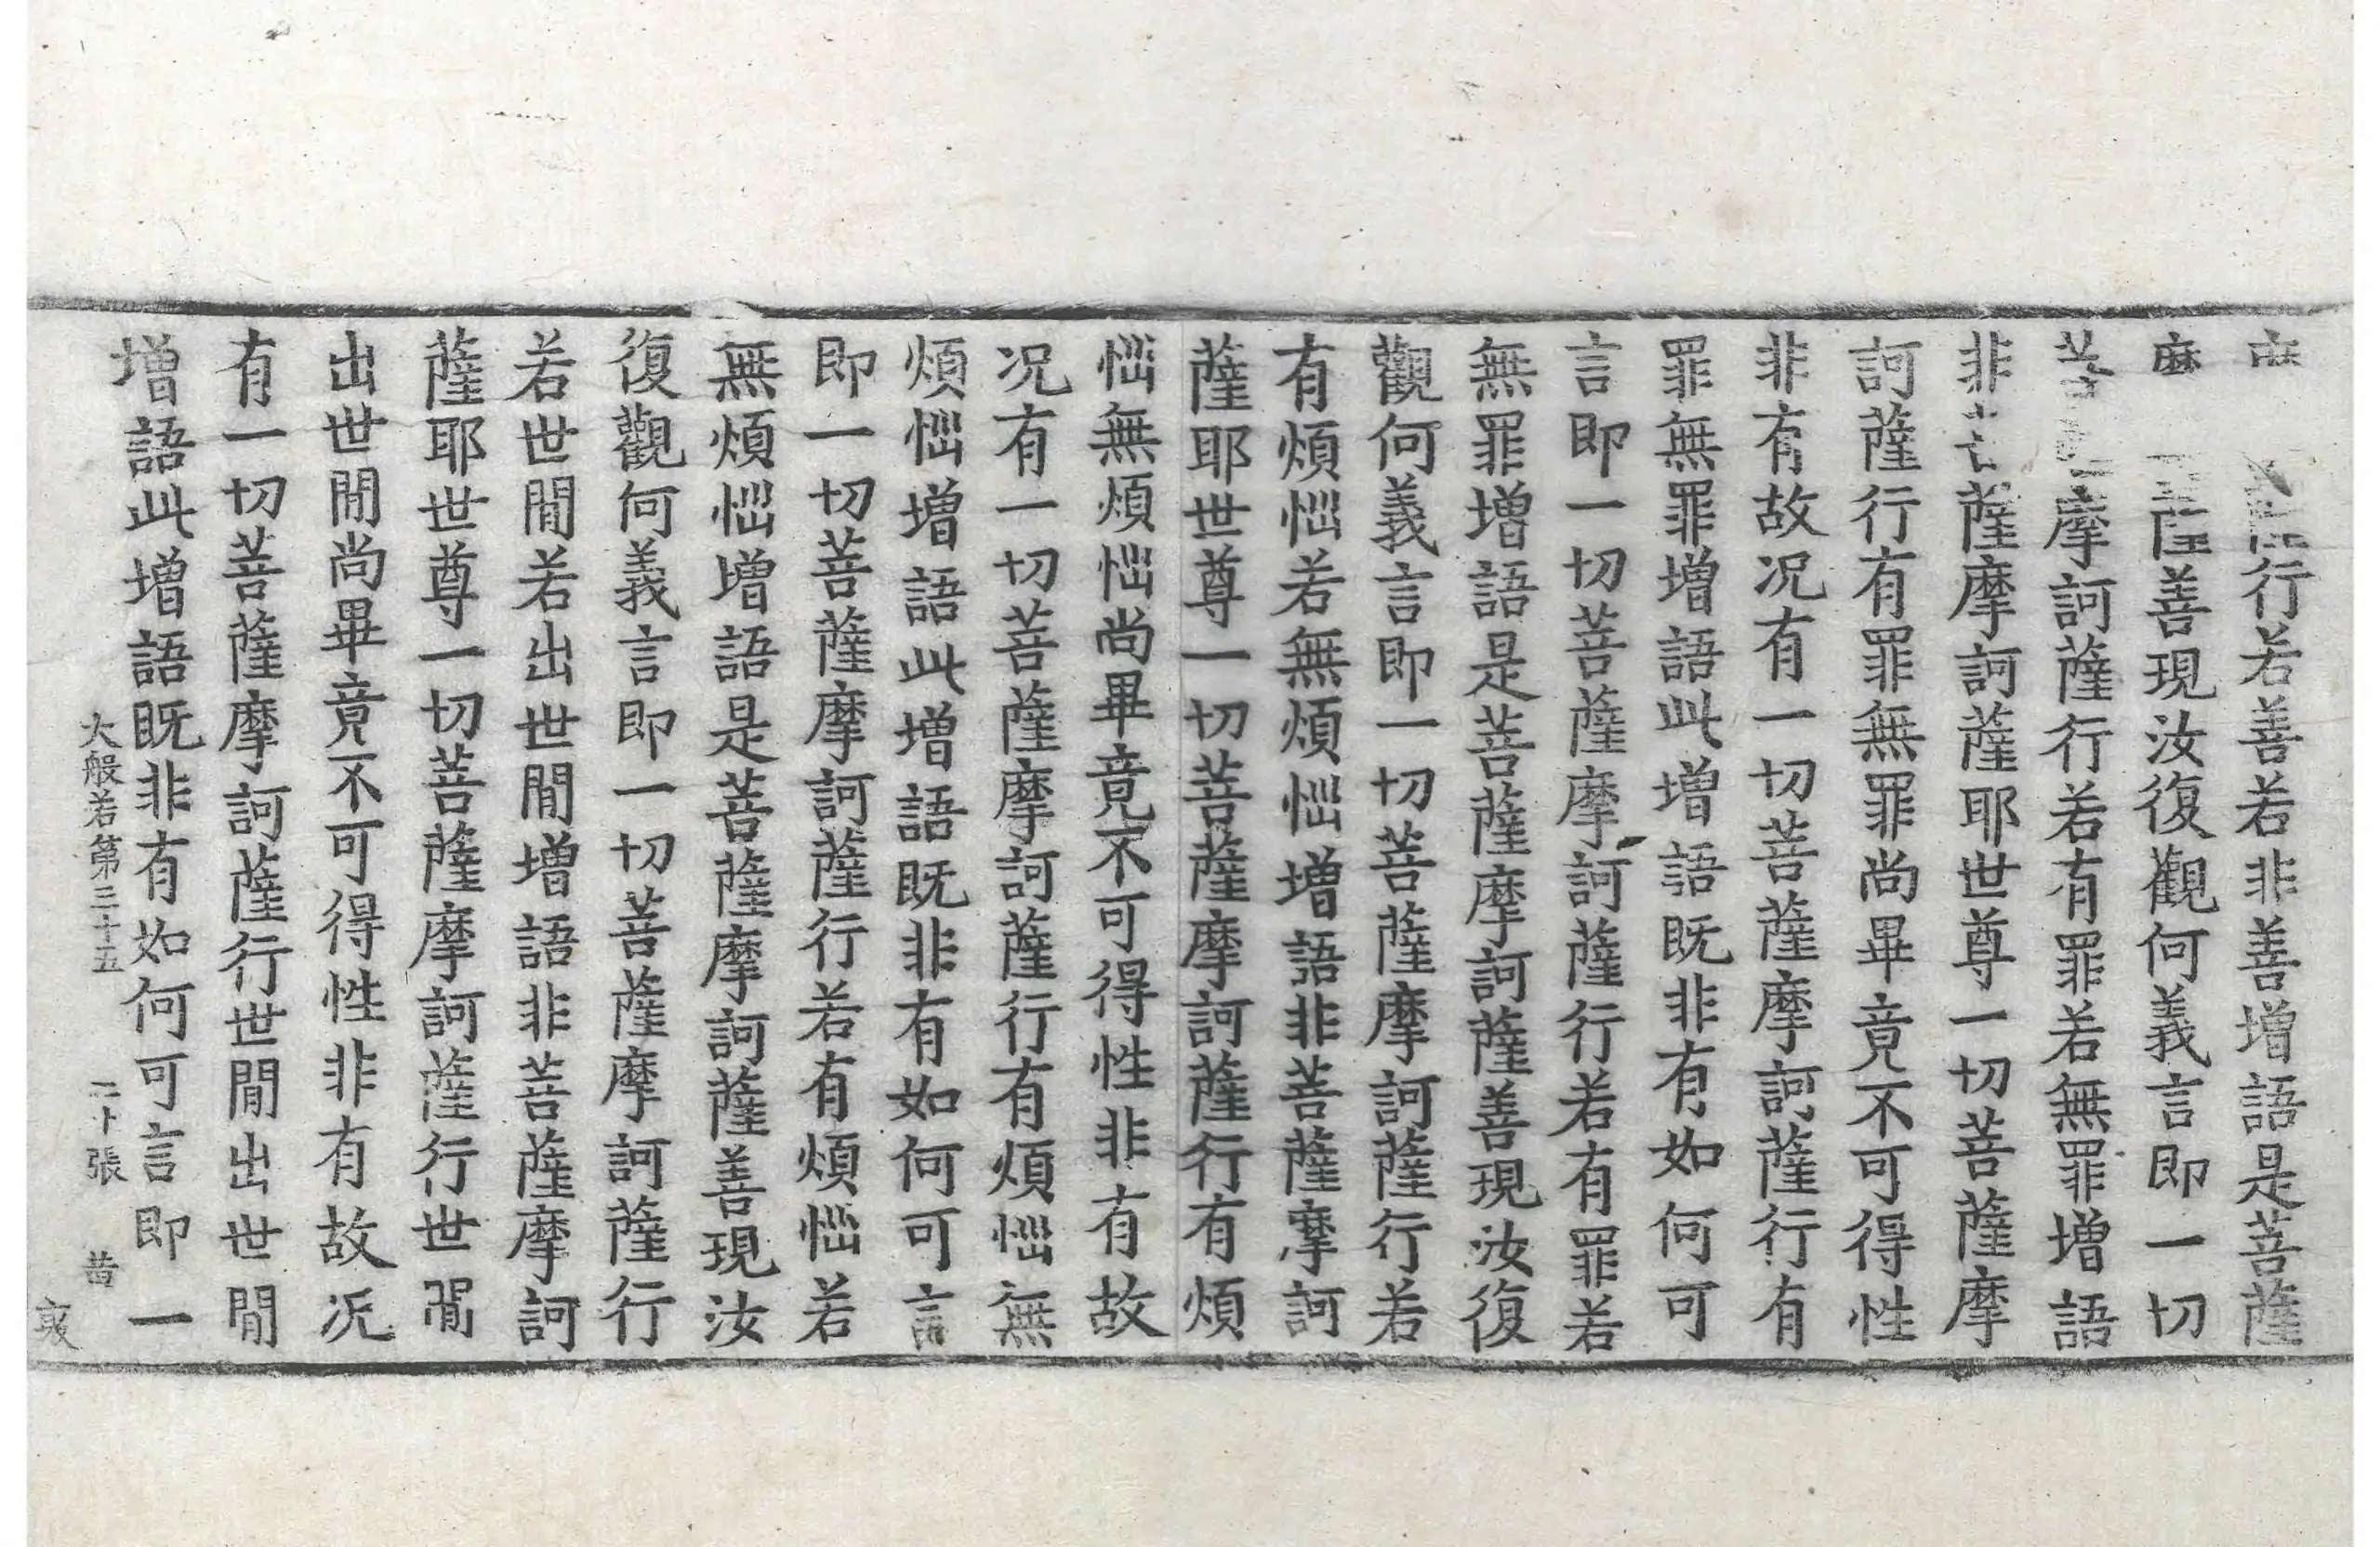 行若善若非善增語是菩薩
薩善現汝復觀何義言即一切
摩訶薩行若有罪若無罪增語
非薩摩訶薩耶世尊一切菩薩摩
訶薩行有罪無罪尚畢竟不可得性
非有故況有一切菩薩摩訶薩行有
罪無罪增語此增語既非有如何可
言即一切菩薩摩訶薩行若有罪若
無罪增語是菩薩摩訶薩善現汝復
觀何義言即一切菩薩摩訶薩行若
有煩惱若無煩惱增語非菩薩摩訶
薩耶世尊一切菩薩摩訶薩行有煩
惱無煩惱尚畢竟不可得性非有故
況有一切菩薩摩訶薩行有煩惱無
煩惱增語此增語既非有如何可言
即一切菩薩摩訶薩行若有煩惱若
無煩惱增語是菩薩摩訶薩善現汝
復觀何義言即一切菩薩摩訶薩行
若世間若出世間增語非菩薩摩訶
薩耶世尊一切菩薩摩訶薩行世間
出世間尚畢竟不可得性非有故況
有一切菩薩摩訶薩行世間出世間
增語此增語既非有如何可言即一
大般若第三十五 二十張